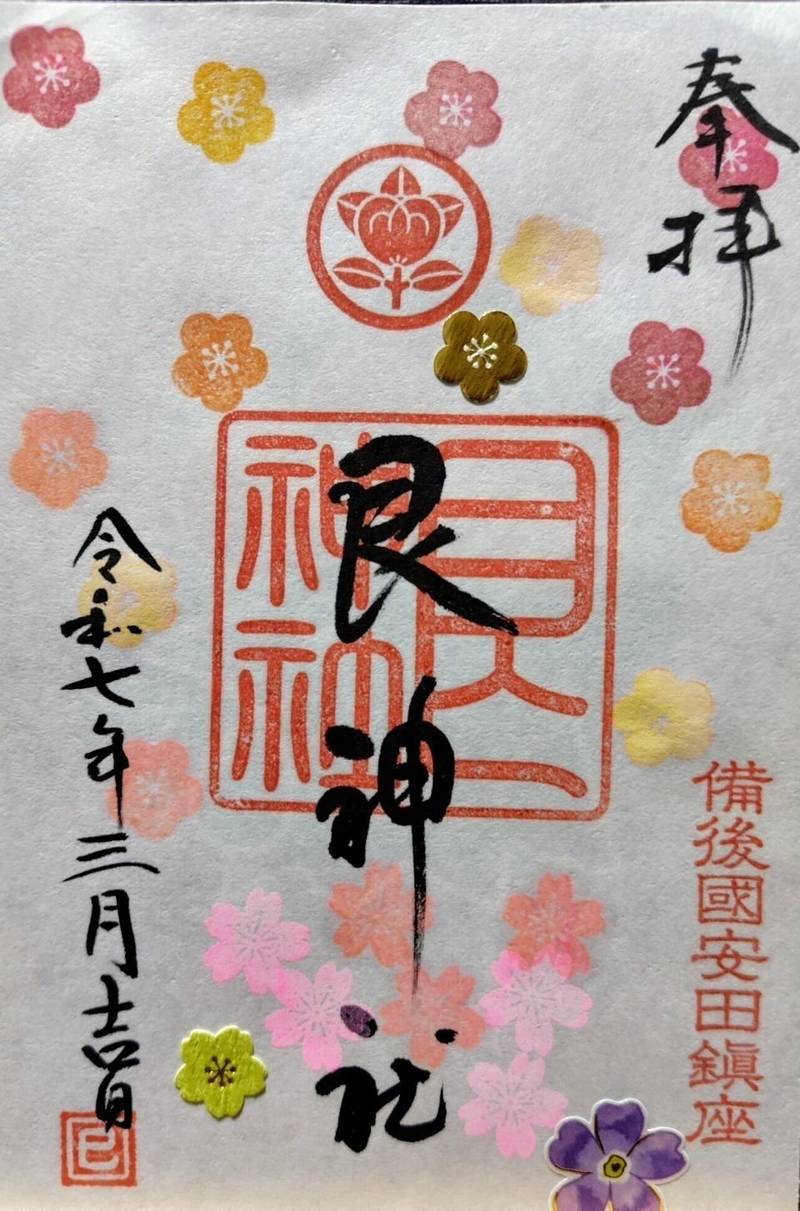 奉拝
艮神社
艮神社
備後國安田鎭座
令和七年三月吉日
巳